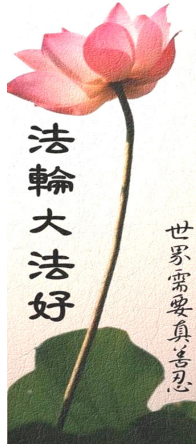 法輪大法好
世界需要真善忍